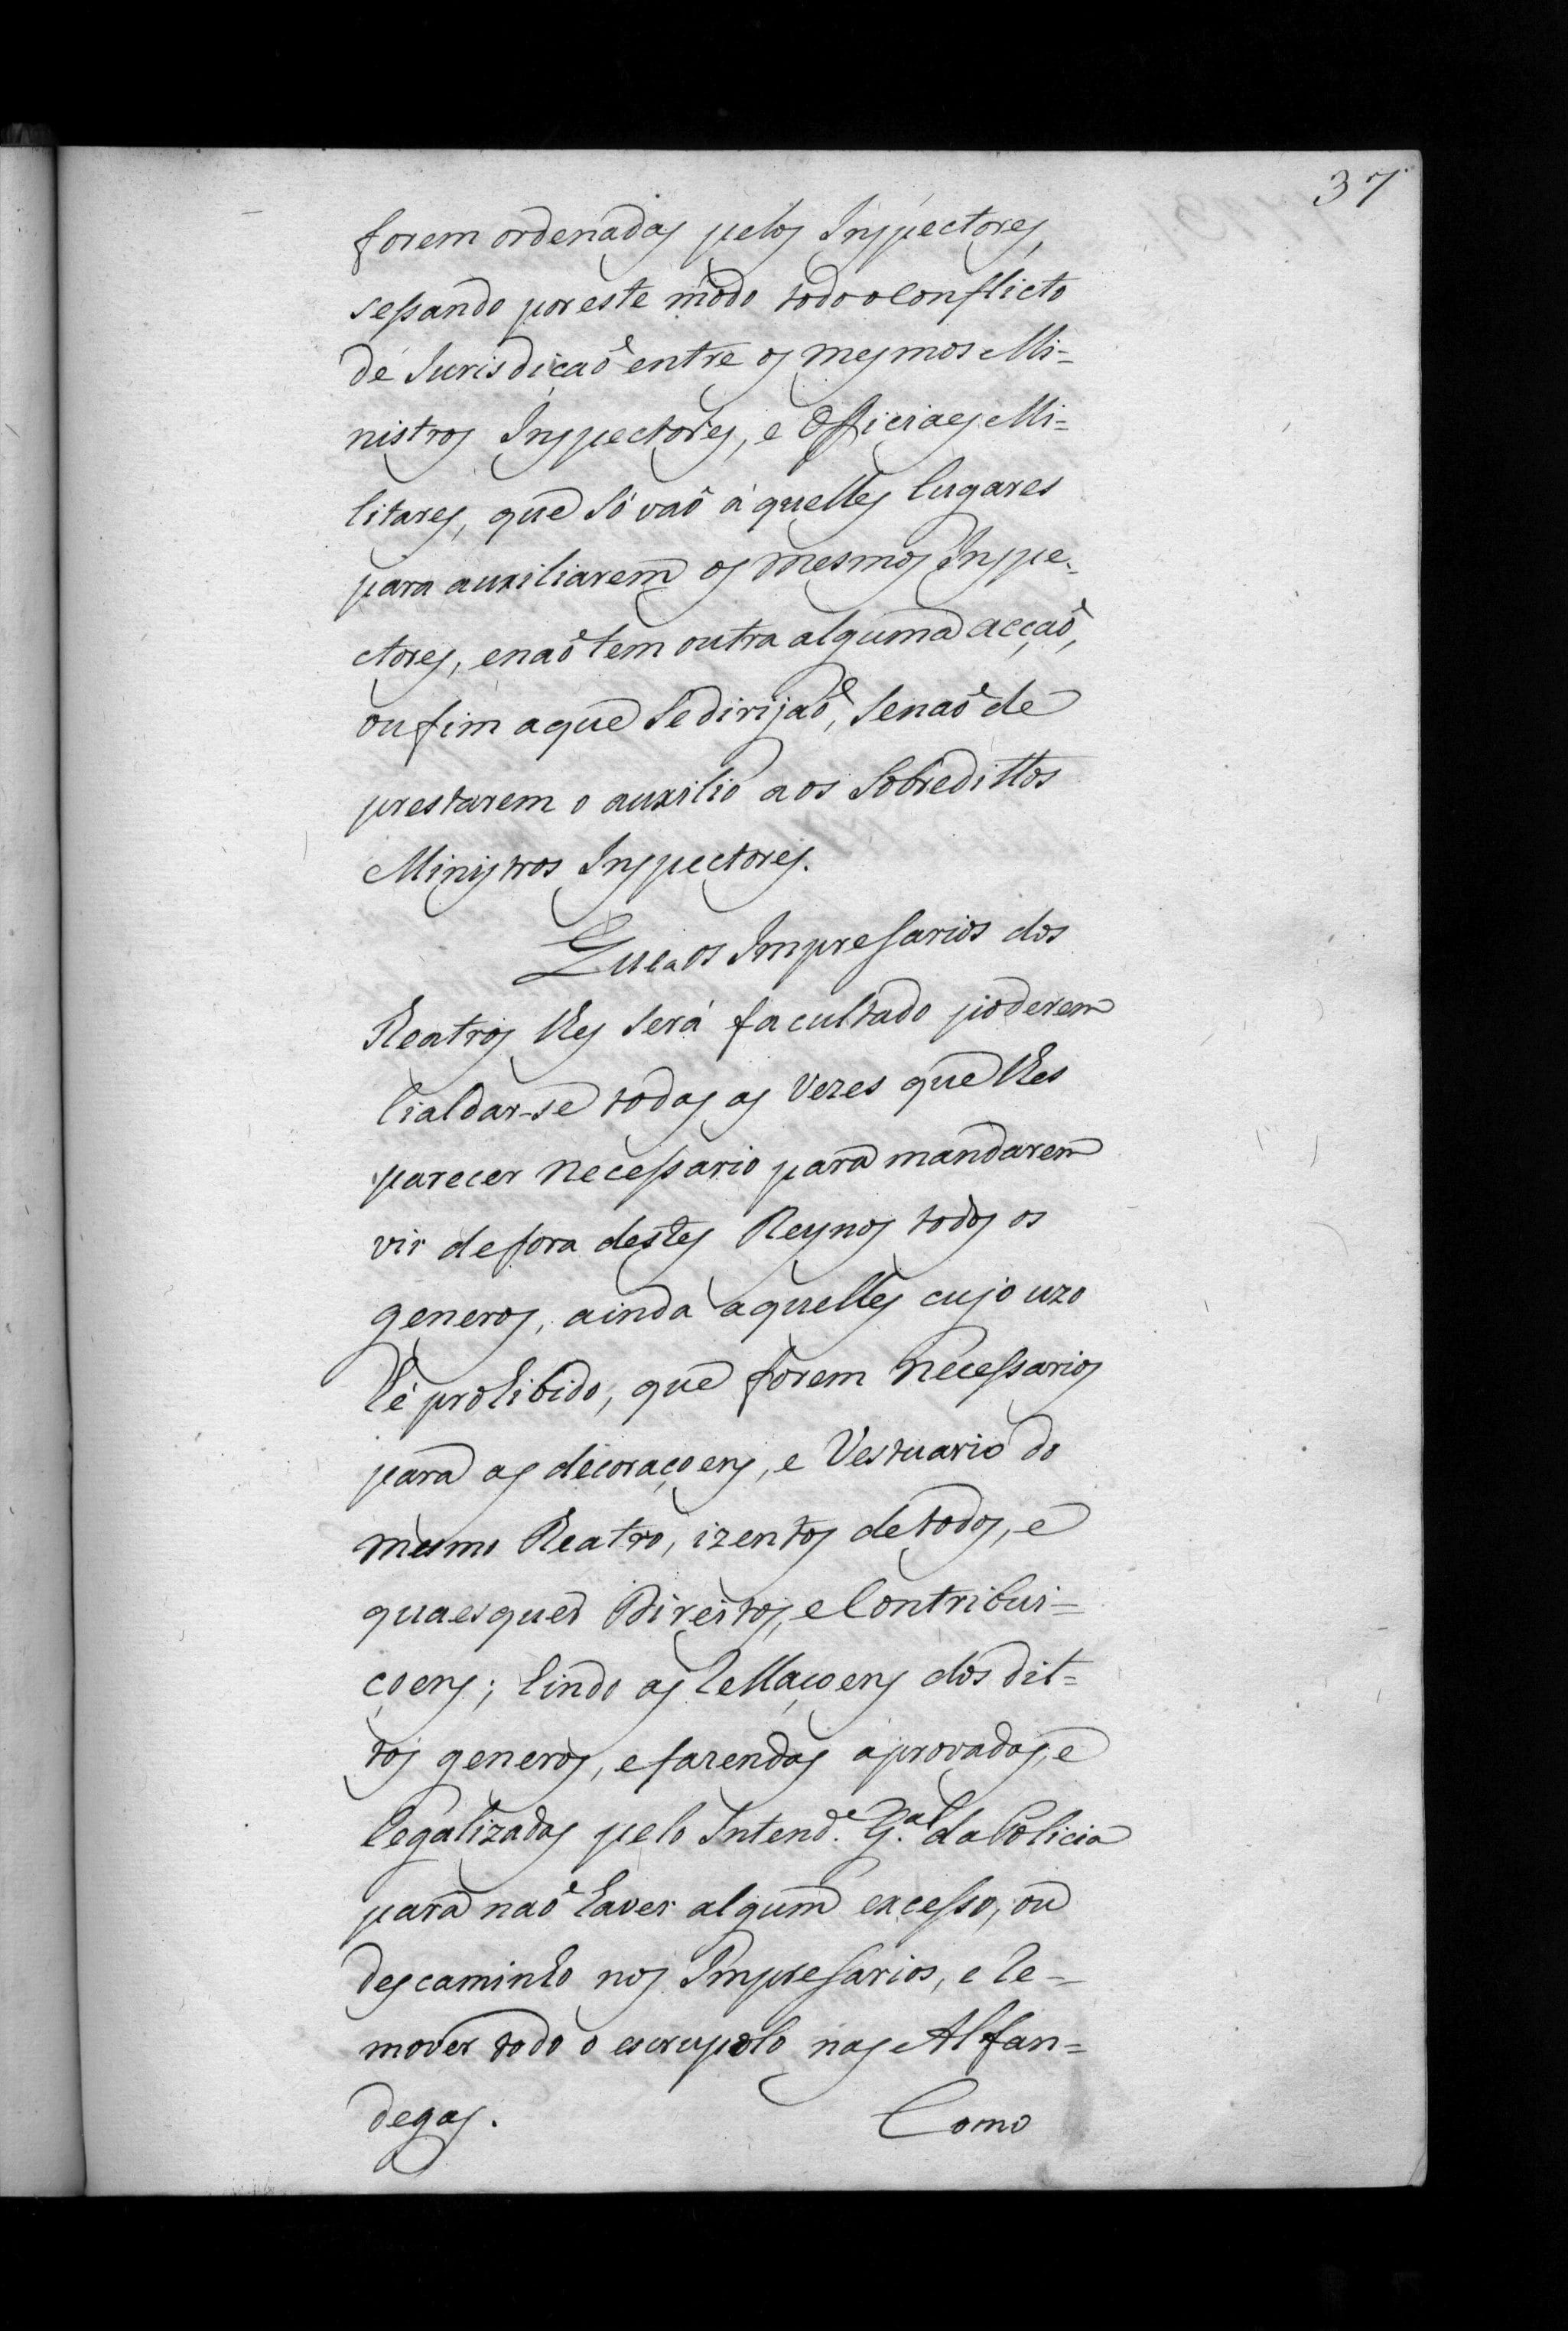 37
forem ordenadas pelos Inspectores,
sessando por este modo todo o Conflicto
de Jurisdiçaõ entre os mesmos Mi=
nistros Inspectores, e Officiaes Mi=
litares, que só vaõ áquelles lugares
para auxiliarem os mesmos Inspe-
ctores, e naõ tem outra alguma acçaõ,
ou fim a que se dirijaõ, senaõ de
prestarem o auxilio aos Sobredittos
Ministros Inspectores.
Que aos Impresarios dos
Theatros lhes será facultado poderem
Cialdar-se todas as vezes que lhes
parecer necessario para mandarem
vir de fora destes Reynos todos os
generos, ainda aquelles cujo uzo
hé prohibido, que forem necessarios
para as decoraçoens, e Vestuario do
mesmo Theatro, izentos de todos, e
quaesquer Direitos, e Contribui=
çoens; hindo as rellaçoens dos dit=
tos generos, e fazendas aprovadas, e
legalizadas pelo Intend.e G.al da Policia
para naõ haver algum excesso, ou
descaminho nos Impresarios, e re=
mover todo o escrupolo nas Alfan=
degas. Como